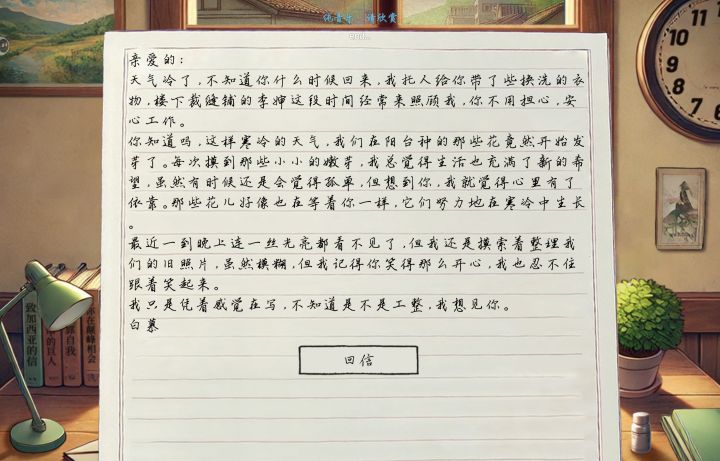 纯音乐，请欣赏
end...
亲爱的：
天气冷了，不知道你什么时候回来，我托人给你带了些换洗的衣
物，楼下裁缝铺的李婶这段时间经常来照顾我，你不用担心，安
心工作。
你知道吗，这样寒冷的天气，我们在阳台种的那些花竟然开始发
芽了。每次摸到那些小小的嫩芽，我总觉得生活也充满了新的希
望，虽然有时候还是会觉得孤单，但想到你，我就觉得心里有了
依靠。那些花儿好像也在等着你一样，它们努力地在寒冷中生长
。
最近一到晚上连一丝光亮都看不见了，但我还是摸索着整理我
们的旧照片，虽然模糊，但我记得你笑得那么开心，我也忍不住
跟着笑起来。
我只是凭着感觉在写，不知道是不是工整，我想见你。
白慕
回信
致加西亚的信
的巨人
靠自我
你在巅峰相会
10
9
8
7